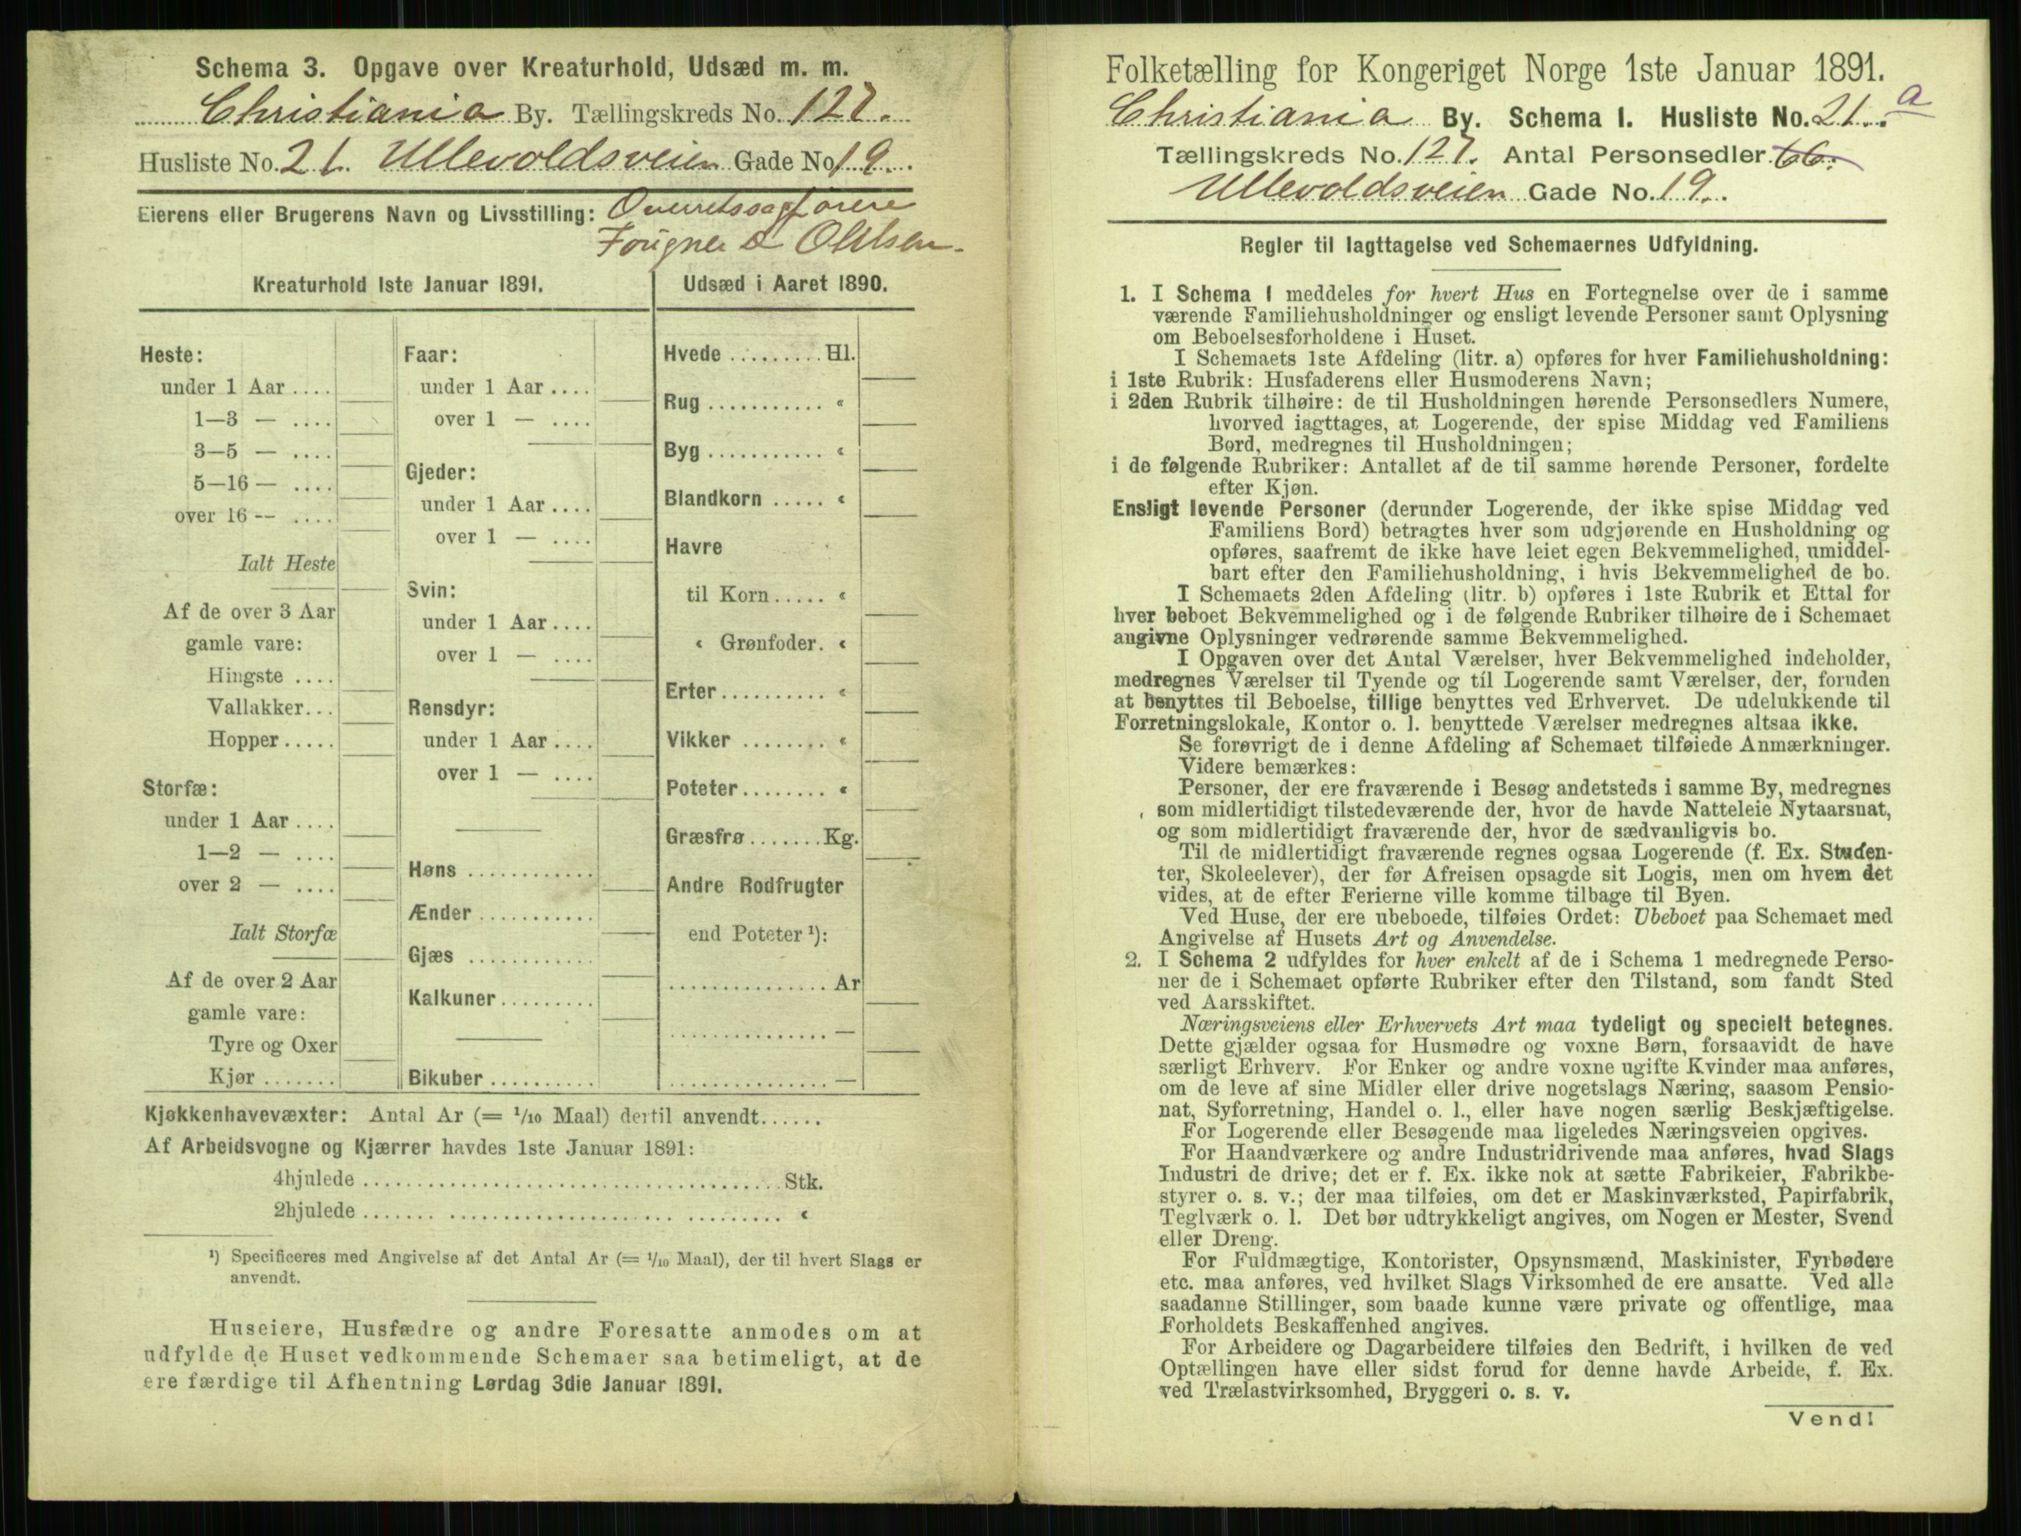 Schema 3. Opgave over Kreaturhold, Udsæd m. m.
Christiania By. Tællingskreds No. 127.
Husliste No. 21. Ullevoldsveien Gade No. 19.
Eierens eller Brugerens Navn og Livsstilling: Overretssagförere
Fougner & Ohlsen.
Kreaturhold 1ste Januar 1891.
Heste:
under 1 Aar ....
1—3 — ....
3—5 — ....
5—16 — ....
over 16 — ....
Ialt Heste
Af de over 3 Aar
gamle vare:
Hingste ....
Vallakker...
Hopper.....
Storfæ:
under 1 Aar ....
1—2 — ....
over 2 — ....
Ialt Storfæ
Af de over 2 Aar
gamle vare:
Tyre og Oxer
Kjør .......
Faar:
under 1 Aar ....
over 1 — ....
Gjeder:
under 1 Aar ....
over 1 — ....
Svin:
under 1 Aar ....
over 1 — ....
Rensdyr:
under 1 Aar ....
over 1 — ....
Høns ............
Ænder ...........
Gjæs ............
Kalkuner .........
Bikuber ..........
Udsæd i Aaret 1890.
Hvede ......... Hl.
Rug ........... «
Byg ........... «
Blandkorn ..... «
Havre
til Korn ..... «
« Grønfoder. «
Erter.......... «
Vikker ........ «
Poteter........ «
Græsfrø ....... Kg.
Andre Rodfrugter
end Poteter ¹):
............... Ar
............... —
............... —
Kjøkkenhavevæxter: Antal Ar (= 1/10 Maal) dertil anvendt......
Af Arbeidsvogne og Kjærrer havdes 1ste Januar 1891:
4hjulede ..................................... Stk.
2hjulede ..................................... «
¹) Specificeres med Angivelse af det Antal Ar (= 1/10 Maal), der til hvert Slags er
anvendt.
Huseiere, Husfædre og andre Foresatte anmodes om at
udfylde de Huset vedkommende Schemaer saa betimeligt, at de
ere færdige til Afhentning Lørdag 3die Januar 1891.
Folketælling for Kongeriget Norge 1ste Januar 1891.
Christiania By. Schema 1. Husliste No. 21. a
Tællingskreds No. 127. Antal Personsedler 66.
Ullevoldsveien Gade No. 19.
Regler til Iagttagelse ved Schemaernes Udfyldning.
1. I Schema 1 meddeles for hvert Hus en Fortegnelse over de i samme
værende Familiehusholdninger og ensligt levende Personer samt Oplysning
om Beboelsesforholdene i Huset.
I Schemaets 1ste Afdeling (litr. a) opføres for hver Familiehusholdning:
i 1ste Rubrik: Husfaderens eller Husmoderens Navn;
i 2den Rubrik tilhøire: de til Husholdningen hørende Personsedlers Numere,
hvorved iagttages, at Logerende, der spise Middag ved Familiens
Bord, medregnes til Husholdningen;
i de følgende Rubriker: Antallet af de til samme hørende Personer, fordelte
efter Kjøn.
Ensligt levende Personer (derunder Logerende, der ikke spise Middag ved
Familiens Bord) betragtes hver som udgjørende en Husholdning og
opføres, saafremt de ikke have leiet egen Bekvemmelighed, umiddel-
bart efter den Familiehusholdning, i hvis Bekvemmelighed de bo.
I Schemaets 2den Afdeling (litr. b) opføres i 1ste Rubrik et Ettal for
hver beboet Bekvemmelighed og i de følgende Rubriker tilhøire de i Schemaet
angivne Oplysninger vedrørende samme Bekvemmelighed.
I Opgaven over det Antal Værelser, hver Bekvemmelighed indeholder,
medregnes Værelser til Tyende og til Logerende samt Værelser, der, foruden
at benyttes til Beboelse, tillige benyttes ved Erhvervet. De udelukkende til
Forretningslokale, Kontor o. l. benyttede Værelser medregnes altsaa ikke.
Se forøvrigt de i denne Afdeling af Schemaet tilføiede Anmærkninger.
Videre bemærkes:
Personer, der ere fraværende i Besøg andetsteds i samme By, medregnes
som midlertidigt tilstedeværende der, hvor de havde Natteleie Nytaarsnat,
og som midlertidigt fraværende der, hvor de sædvanligvis bo.
Til de midlertidigt fraværende regnes ogsaa Logerende (f. Ex. Studen-
ter, Skoleelever), der før Afreisen opsagde sit Logis, men om hvem det
vides, at de efter Ferierne ville komme tilbage til Byen.
Ved Huse, der ere ubeboede, tilføies Ordet: Ubeboet paa Schemaet med
Angivelse af Husets Art og Anvendelse.
2. I Schema 2 udfyldes for hver enkelt af de i Schema 1 medregnede Perso-
ner de i Schemaet opførte Rubriker efter den Tilstand, som fandt Sted
ved Aarsskiftet.
Næringsveiens eller Erhvervets Art maa tydeligt og specielt betegnes.
Dette gjælder ogsaa for Husmødre og voxne Børn, forsaavidt de have
særligt Erhverv. For Enker og andre voxne ugifte Kvinder maa anføres,
om de leve af sine Midler eller drive nogetslags Næring, saasom Pensio-
nat, Syforretning, Handel o. l., eller have nogen særlig Beskjæftigelse.
For Logerende eller Besøgende maa ligeledes Næringsveien opgives.
For Haandværkere og andre Industridrivende maa anføres, hvad Slags
Industri de drive; det er f. Ex. ikke nok at sætte Fabrikeier, Fabrikbe-
styrer o. s. v.; der maa tilføies, om det er Maskinværksted, Papirfabrik,
Teglværk o. l. Det bør udtrykkeligt angives, om Nogen er Mester, Svend
eller Dreng.
For Fuldmægtige, Kontorister, Opsynsmænd, Maskinister, Fyrbødere
etc. maa anføres, ved hvilket Slags Virksomhed de ere ansatte. Ved alle
saadanne Stillinger, som baade kunne være private og offentlige, maa
Forholdets Beskaffenhed angives.
For Arbeidere og Dagarbeidere tilføies den Bedrift, i hvilken de ved
Optællingen have eller sidst forud for denne havde Arbeide, f. Ex.
ved Trælastvirksomhed, Bryggeri o. s. v.
Vend!